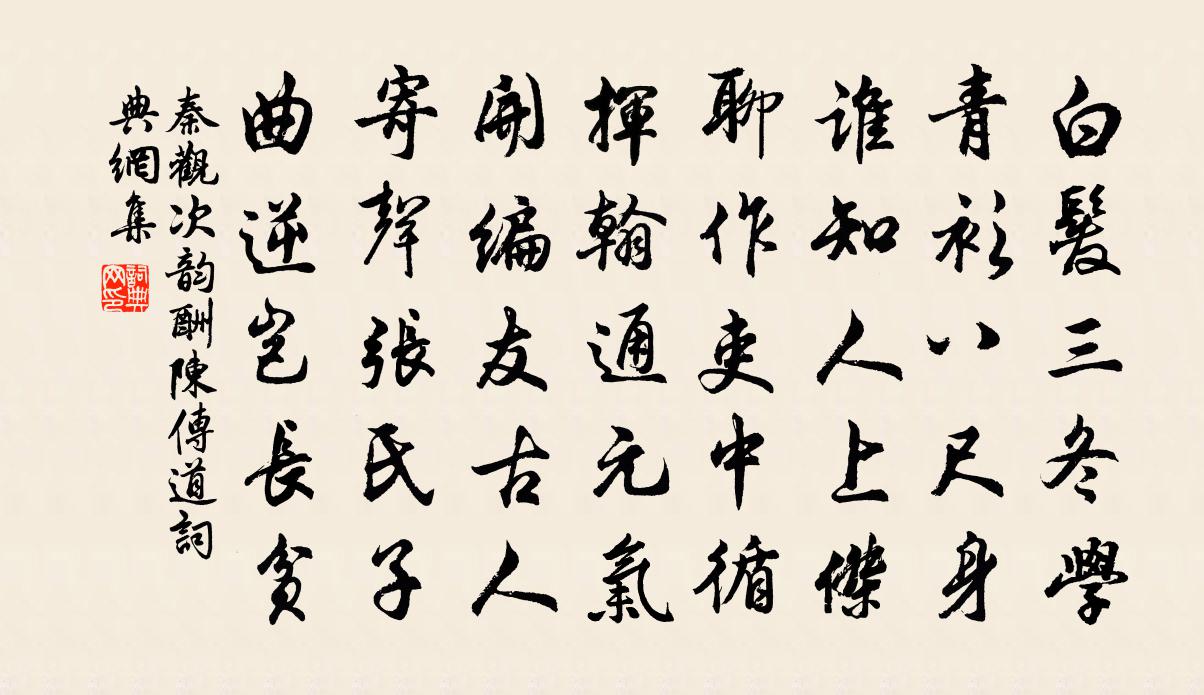 白髮三冬學
青衫八尺身
誰知人上傑
聊作吏中循
揮翰通元氣
開編友古人
寄聲張氏子
曲逆豈長貧
秦觀次韵酬陳傳道詞
典網集
詞典
网印